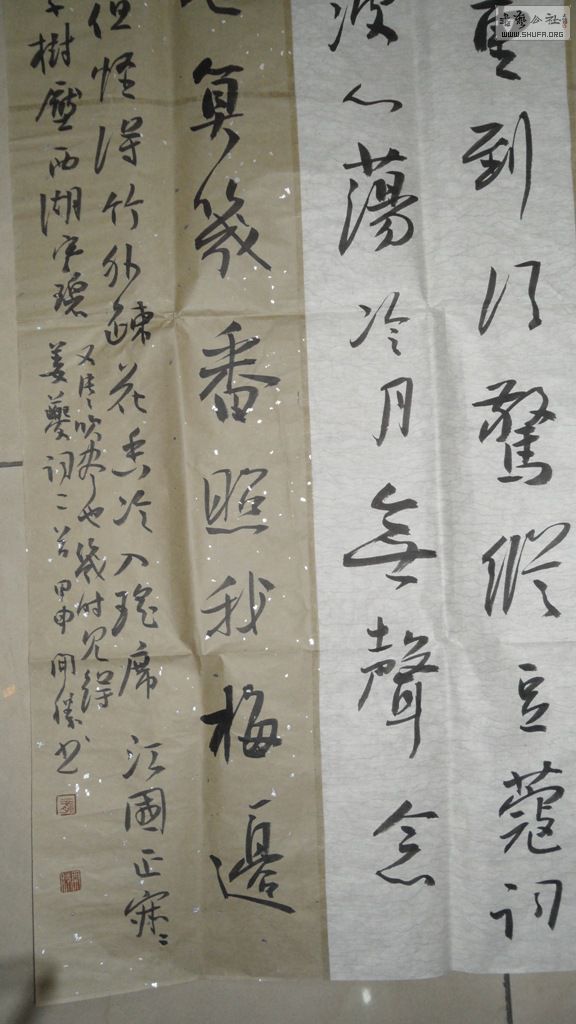 重到須驚縱豆蔻詞
波心蕩冷月無聲念
色算幾番照我梅邊
但怪得竹外疎花香冷入瑤席江國正寂寂
千樹壓西湖寒碧
又片片吹盡也幾時見得
姜夔詞二首甲申開勝書
書藝公社
WWW.SHUFA.ORG